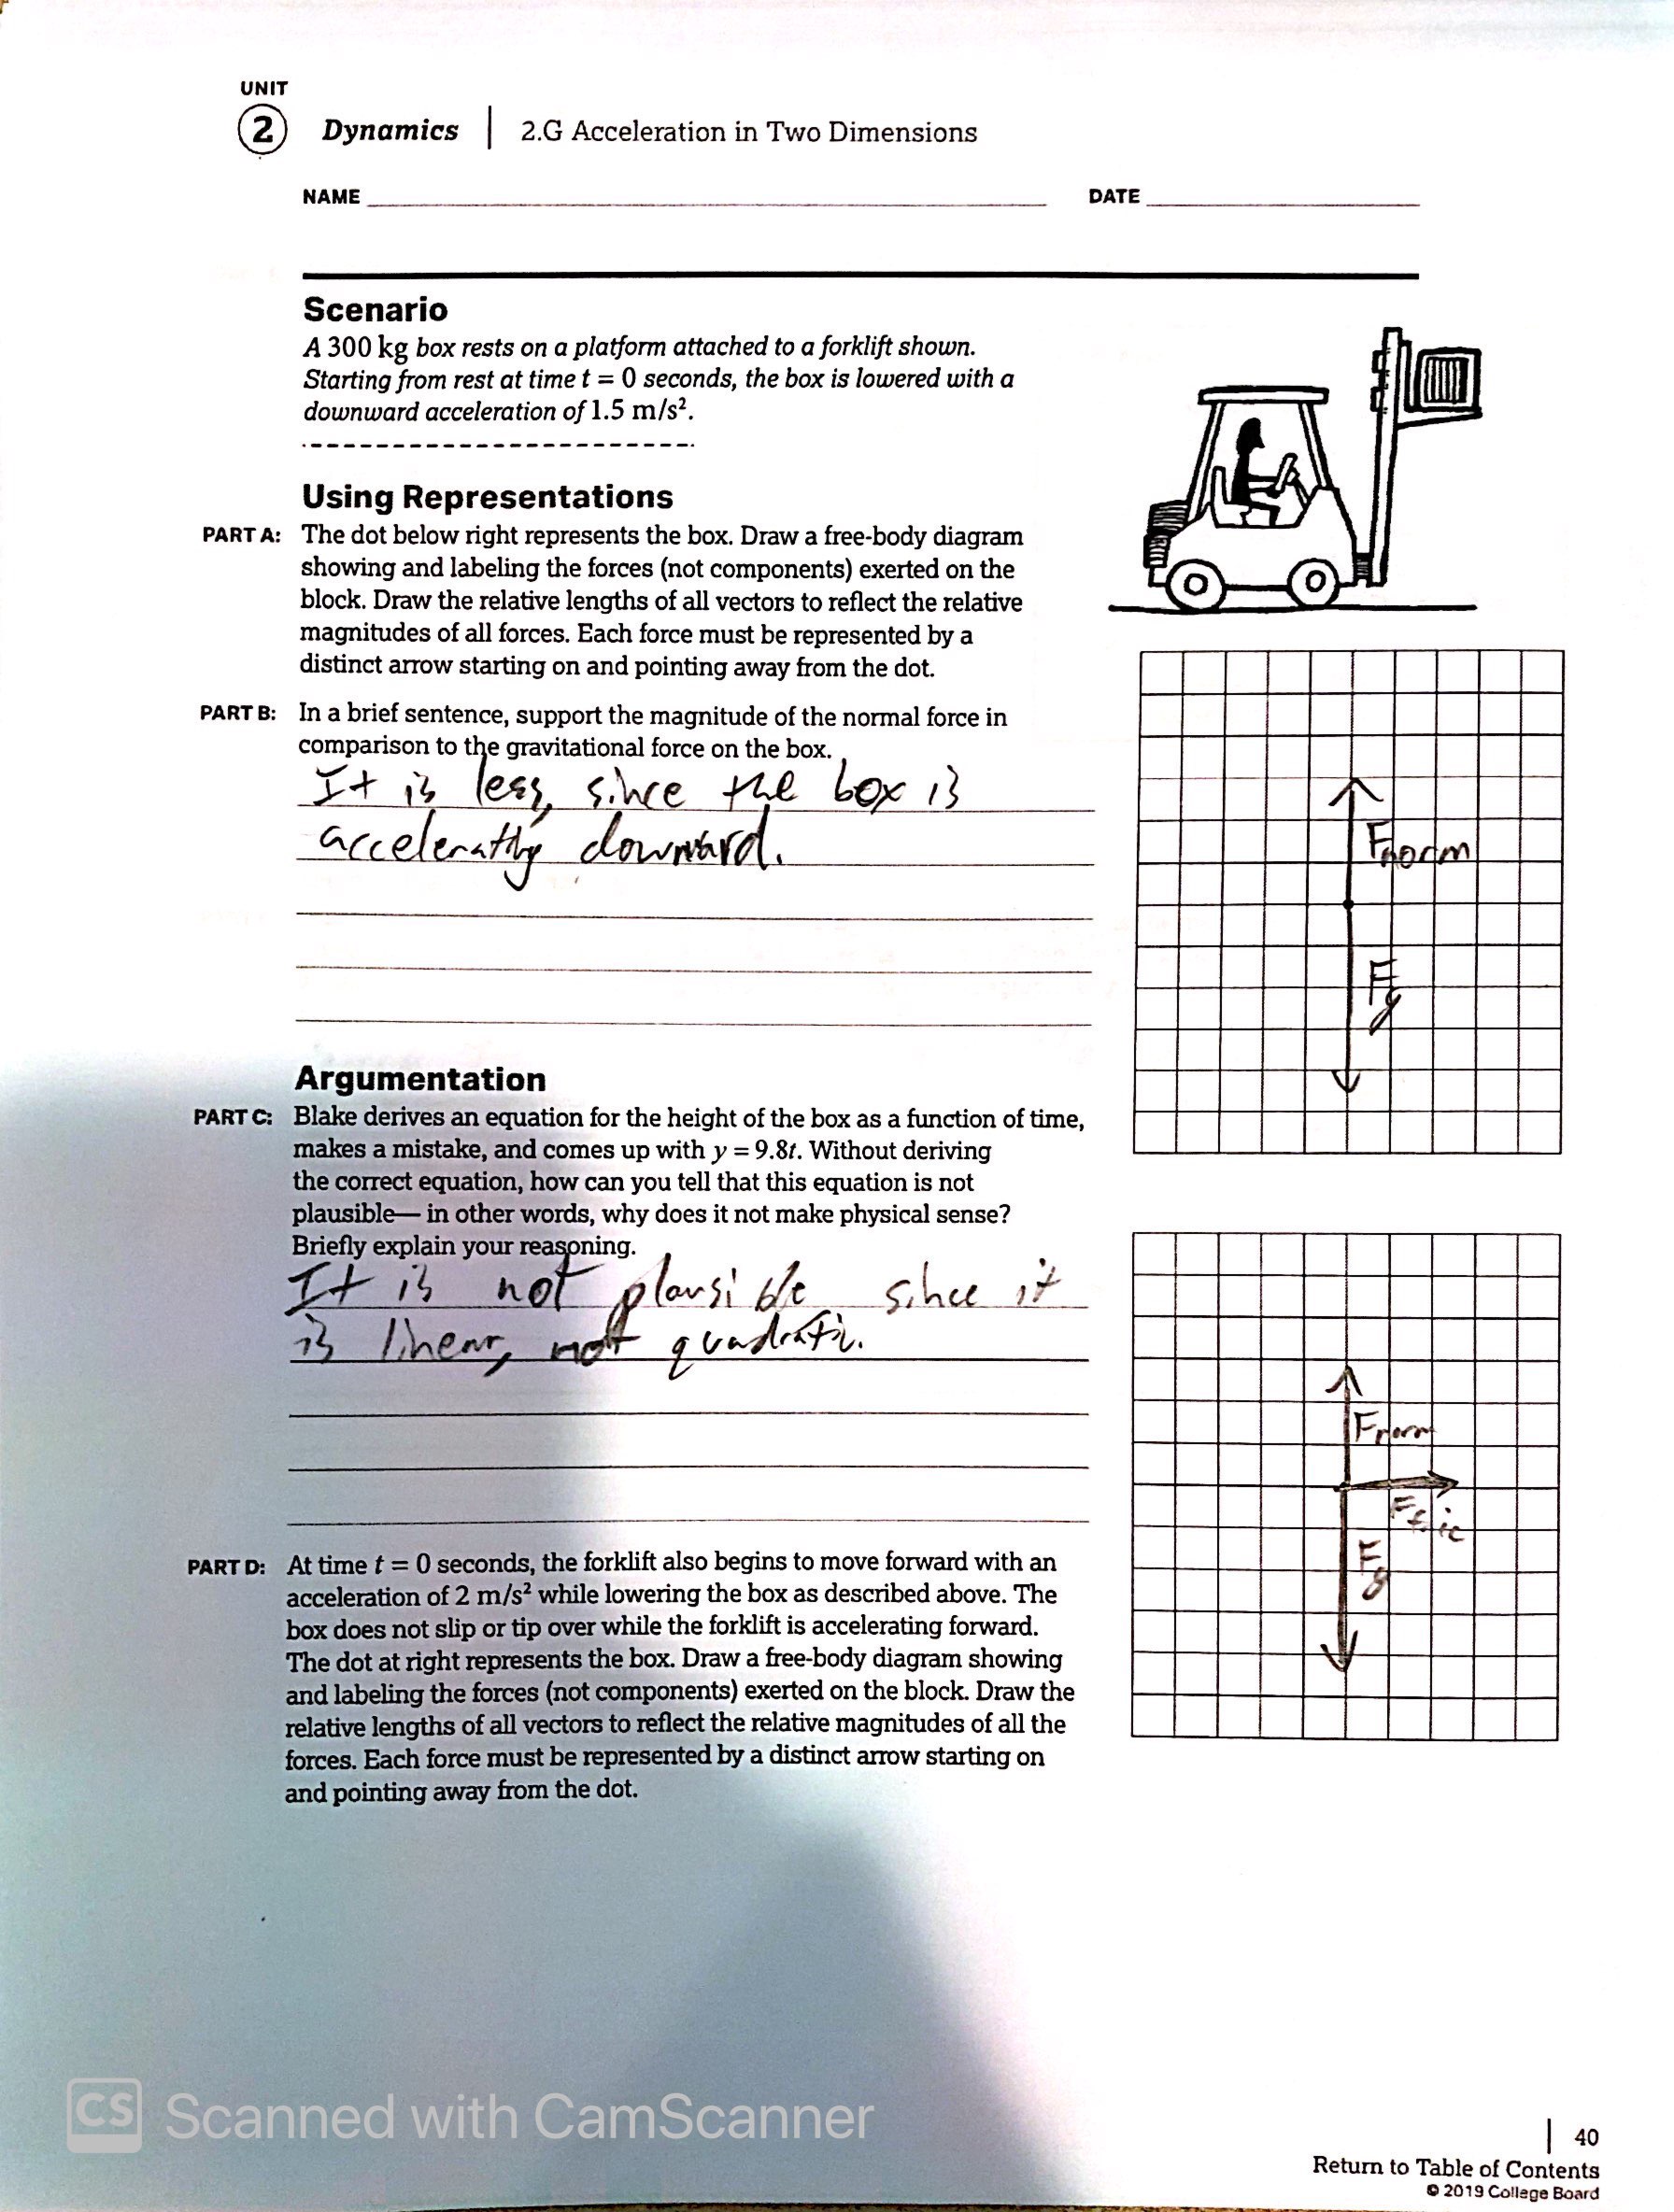 UNIT
2 Dynamics | 2.G Acceleration in Two Dimensions
NAME DATE
Scenario
A 300 kg box rests on a platform attached to a forklift shown.
Starting from rest at time t = 0 seconds, the box is lowered with a
downward acceleration of 1.5 m/s².
Using Representations
PART A: The dot below right represents the box. Draw a free-body diagram
showing and labeling the forces (not components) exerted on the
block. Draw the relative lengths of all vectors to reflect the relative
magnitudes of all forces. Each force must be represented by a
distinct arrow starting on and pointing away from the dot.
PART B: In a brief sentence, support the magnitude of the normal force in
comparison to the gravitational force on the box.
It is less, since the box is
accelerating downward.
Fnorm
Fg
Argumentation
PART C: Blake derives an equation for the height of the box as a function of time,
makes a mistake, and comes up with y = 9.8t. Without deriving
the correct equation, how can you tell that this equation is not
plausible— in other words, why does it not make physical sense?
Briefly explain your reasoning.
It is not plausible since it
is linear, not quadratic.
Fnorm
Ffric
Fg
PART D: At time t = 0 seconds, the forklift also begins to move forward with an
acceleration of 2 m/s² while lowering the box as described above. The
box does not slip or tip over while the forklift is accelerating forward.
The dot at right represents the box. Draw a free-body diagram showing
and labeling the forces (not components) exerted on the block. Draw the
relative lengths of all vectors to reflect the relative magnitudes of all the
forces. Each force must be represented by a distinct arrow starting on
and pointing away from the dot.
CS Scanned with CamScanner
| 40
Return to Table of Contents
© 2019 College Board